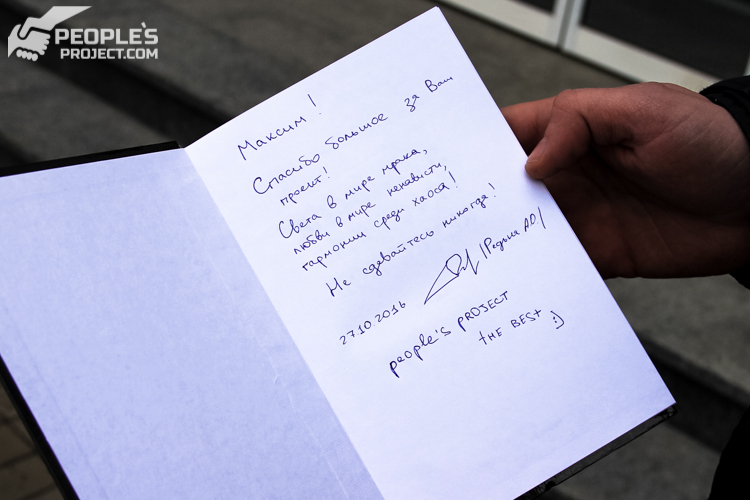 PEOPLE'S
PROJECT.COM
Максим!
Спасибо большое за Ваш
проект!
Света в мире мрака,
любви в мире ненависти,
гармонии среди хаоса!
Не сдавайтесь никогда!
27.10.2016
people's PROJECT
tHE BESt :)